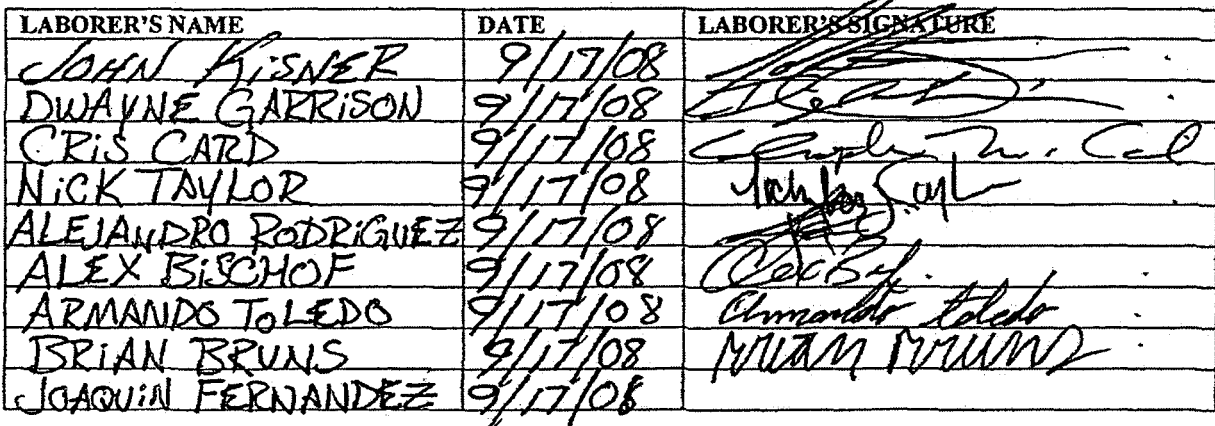 LABORER'S NAME DATE LABORER'S SIGNATURE
JOHN KISNER 9/17/08
DWAYNE GARRISON 9/17/08
CRIS CARD 9/17/08
NICK TAYLOR 9/17/08
ALEJANDRO RODRIGUEZ 9/17/08
ALEX BISCHOF 9/17/08
ARMANDO TOLEDO 9/17/08 Armando toledo
BRIAN BRUNS 9/17/08 BRIAN BRUNS
JOAQUIN FERNANDEZ 9/17/08